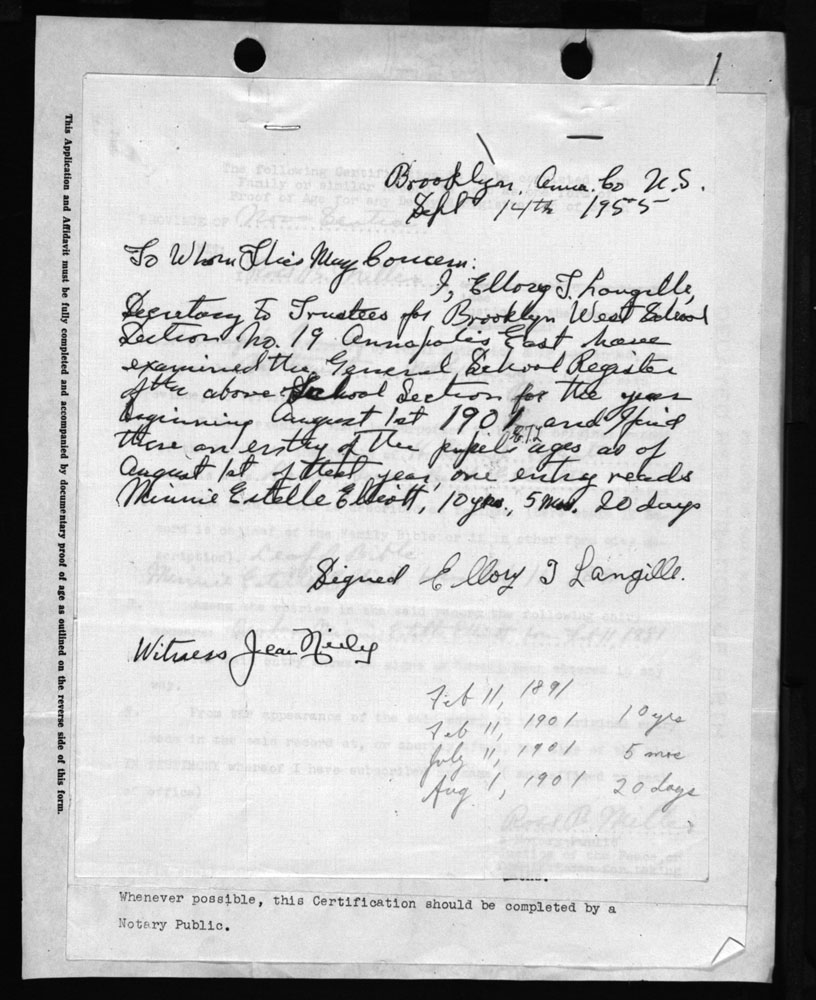 1
Brooklyn, Anna. Co N.S.
Sept 14th 1955
To Whom This May Concern:
I, Ellory J. Langille,
Secretary to Trustees for Brooklyn West School
Section No. 19 Annapolis East have
examined the General School Register
of the above School Section for the year
beginning August 1st 1901 and find
there an entry of the pupils ages as of
August 1st of that year, one entry reads
Minnie Estelle Elliott, 10 yrs., 5 mos. 20 days
Signed Ellory J Langille.
Witness Jean
Feb 11, 1891
Feb 11, 1901 10 yrs
July 11, 1901 5 mos
Aug 1, 1901 20 days
Whenever possible, this Certification should be completed by a
Notary Public.
This Application and Affidavit must be fully completed and accompanied by documentary proof of age as outlined on the reverse side of this form.